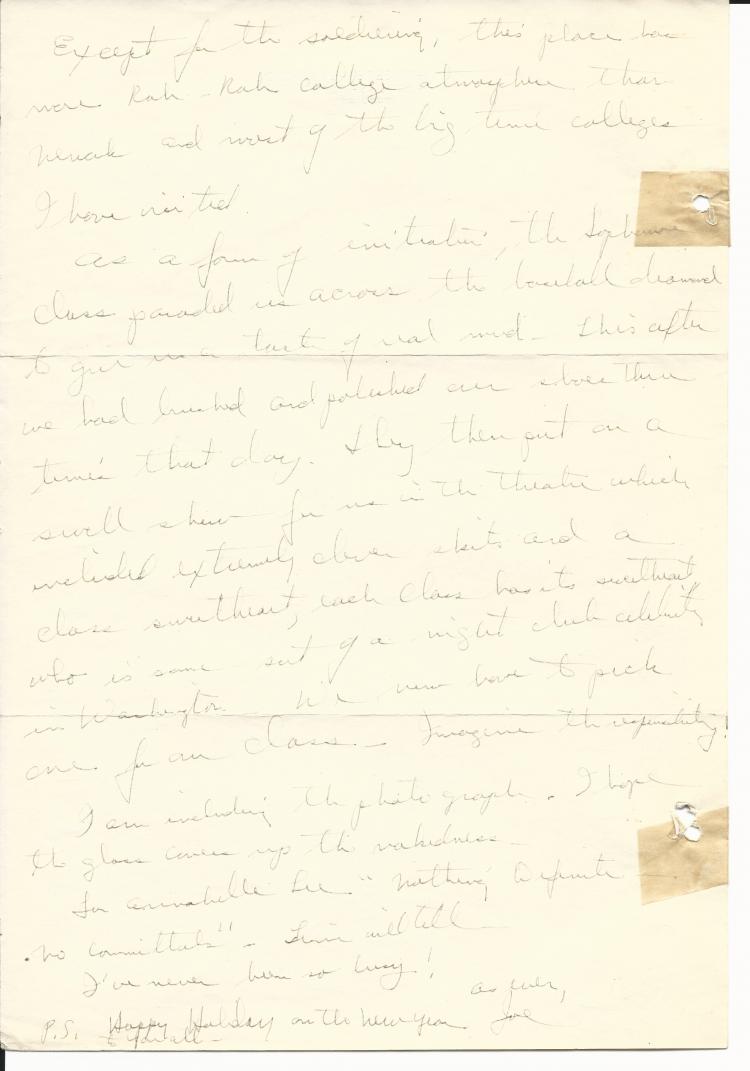 Except for the soldiering, this place has
more Rah-Rah college atmosphere than
Newark and most of the big time colleges
I have visited.
As a form of initiation, the Sophomore
class paraded us across the baseball diamond
to give us a taste of real mud - this after
we had brushed and polished our shoes three
times that day. They then put on a
swell show for us in the theatre which
included extremely clever skits and a
class sweetheart, each class has its sweetheart,
who is some sort of a night club celebrity
in Washington - We now have to pick
one for our class - Imagine the responsibility!
I am including the photograph. I hope
the gloss covers up the nakedness -
For Annabelle Lee "nothing definite -
no committals" - Time will tell -
I've never been so busy!
As ever,
Joe
P.S. Happy Holiday on the new year
to you all -